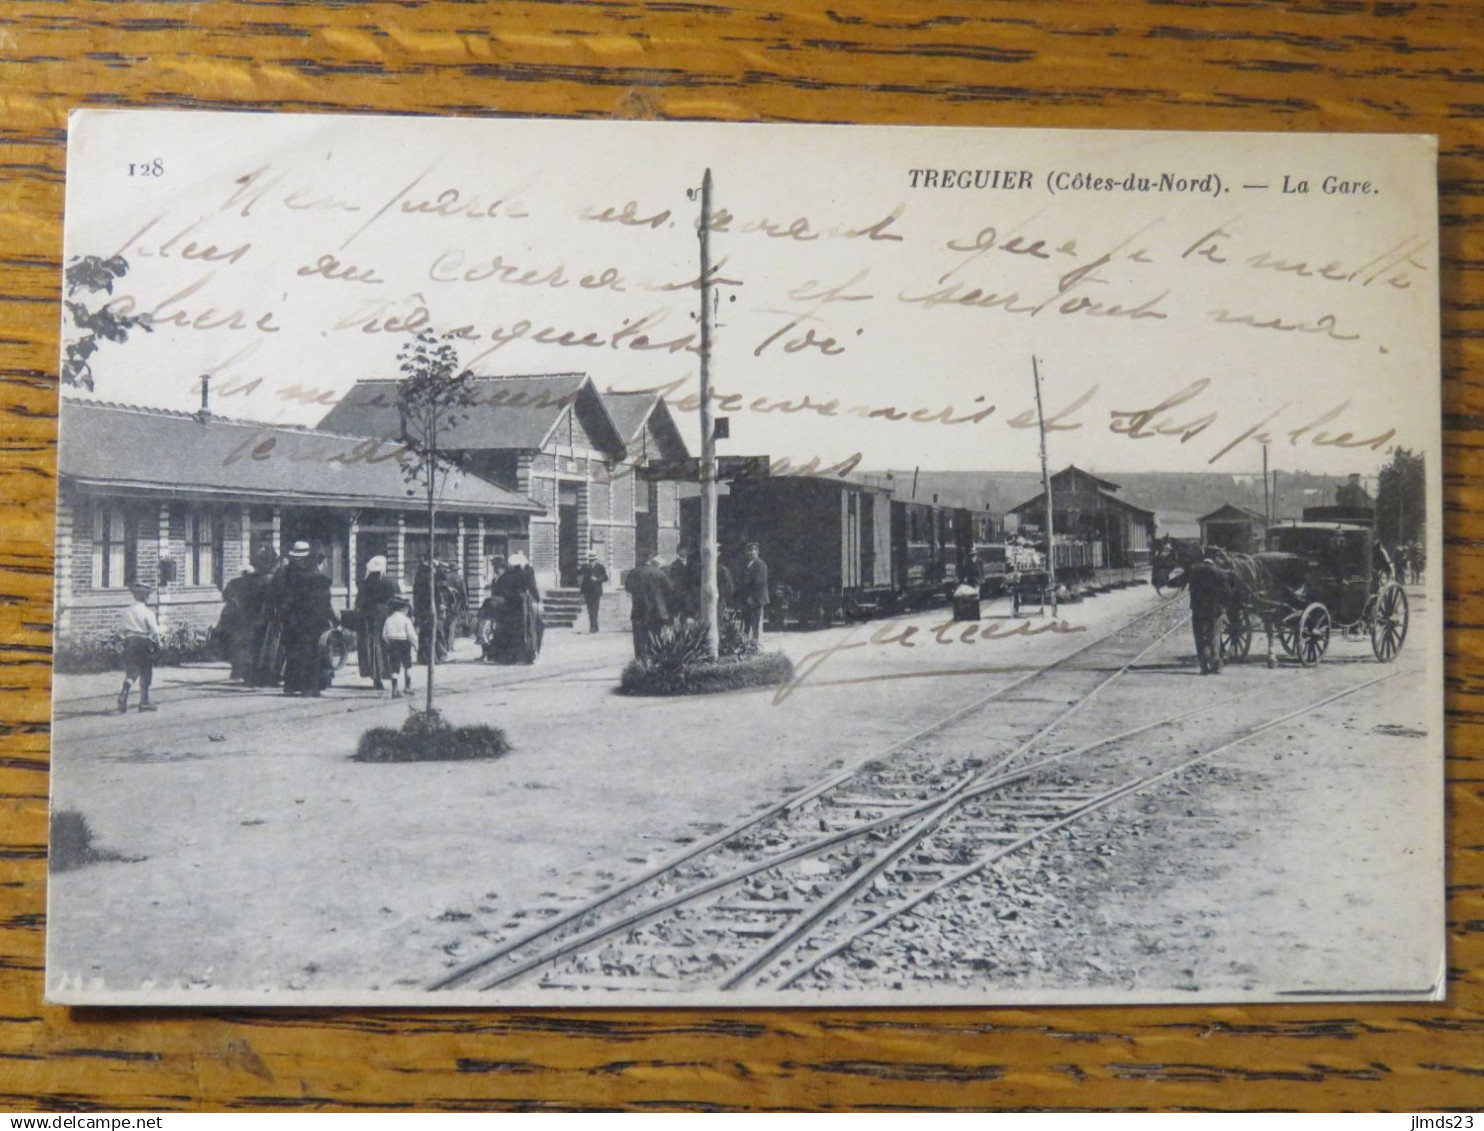 128
TREGUIER (Côtes-du-Nord). — La Gare.
N'en parle pas avant que je te mette
plus au courant et surtout ma
chérie tranquilise toi
Les meilleurs souvenirs et les plus
tendres baisers
jlmds23